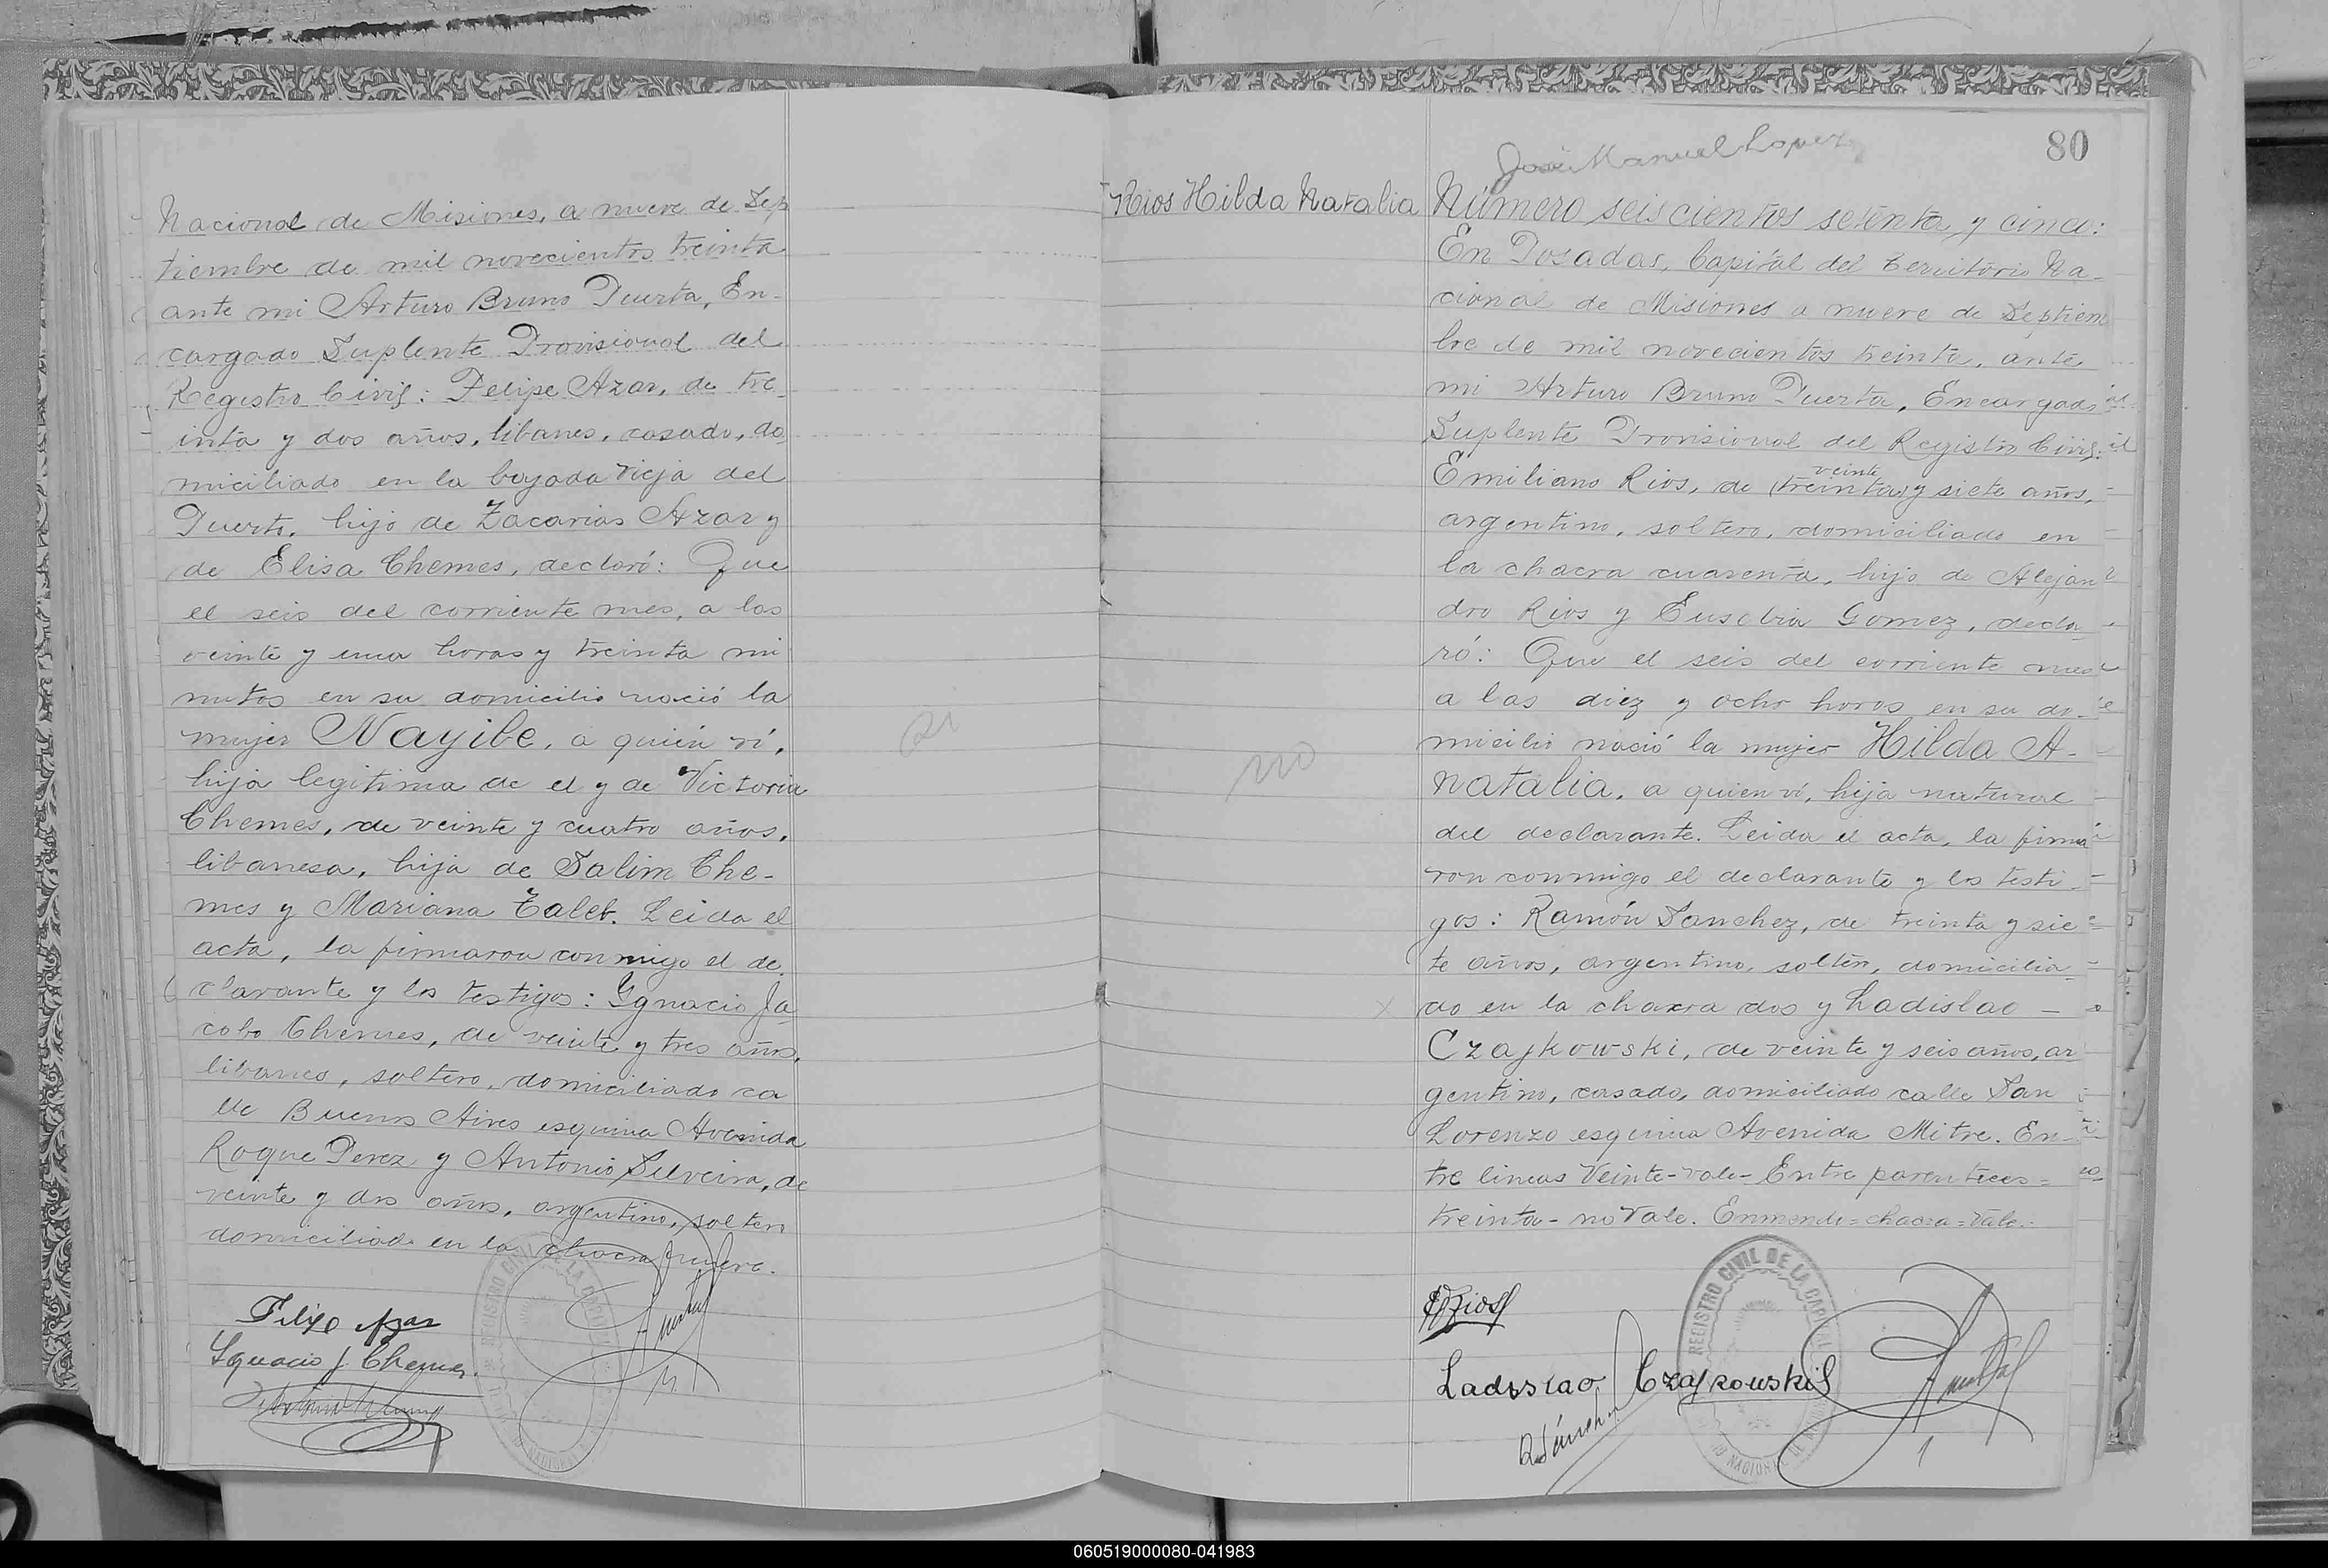 Nacional de Misiones, a nueve de Sep
tiembre de mil novecientos treinta
ante mi Arturo Bruno Puerta, En-
cargado Suplente Provisional del
Registro Civil: Felipe Azar, de tre
inta y dos años, libanes, casado, do
miciliado en la bajada vieja del
Puerto, hijo de Zacarias Azar y
de Elisa Chemes, declaró: Que
el seis del corriente mes, a las
veinte y una horas y treinta mi
nutos en su domicilio nació la
mujer Nayibe, a quién ví,
hija legitima de el y de Victoria
Chemes, de veinte y cuatro años,
libanesa, hija de Salim Che-
mes y Mariana Taleb. Leida el
acta, la firmaron conmigo el de
clarante y los testigos: Ignacio Ja
cobo Chemes, de veinte y tres años,
libanes, soltero, domiciliado ca
lle Buenos Aires esquina Avenida
Roque Perez y Antonio Silveira, de
veinte y dos años, argentino, soltero
domiciliado en la chacra nueve.
Felipe Azar
Ignacio J. Chemes.
80
José Manuel Lopez
Rios Hilda Natalia
Número seiscientos setenta y cinco:
En Posadas, Capital del Territorio Na-
cional de Misiones a nueve de Septiem
bre de mil novecientos treinta, ante
mi Arturo Bruno Puerta, Encargado
Suplente Provisional del Registro Civil:
veinte
Emiliano Rios, de (treinta) y siete años,
argentino, soltero, domiciliado en
la chacra cuarenta, hijo de Alejan
dro Rios y Eusebia Gomez, decla
ró: Que el seis del corriente mes
a las diez y ocho horas en su do-
micilio nació la mujer Hilda A-
natalia, a quien ví, hija natural
del declarante. Leida el acta, la firma
ron conmigo el declarante y los testi-
gos: Ramón Sanchez, de treinta y sie
te años, argentino, soltero, domicilia
do en la chacra dos y Ladislao -
Czajkowski, de veinte y seis años, ar
gentino, casado, domiciliado calle San
Lorenzo esquina Avenida Mitre. En-
tre lineas Veinte-vale- Entre parentices=
treinta- no vale. Enmendo=chacra=Vale.-
no
ERios
Ladislao Czajkowski
RSánchez
REGISTRO CIVIL DE LA CAPITAL
060519000080-041983